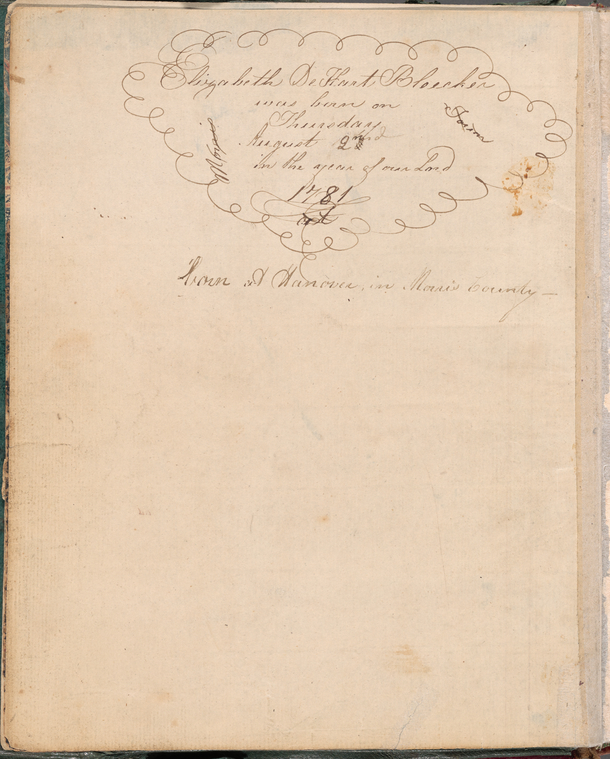 Elizabeth De Hart Bleecker
was born on
Thursday
August 2nd
in the year of our Lord
1781
at
Morris
Town
Born At Hanover in Moris County —